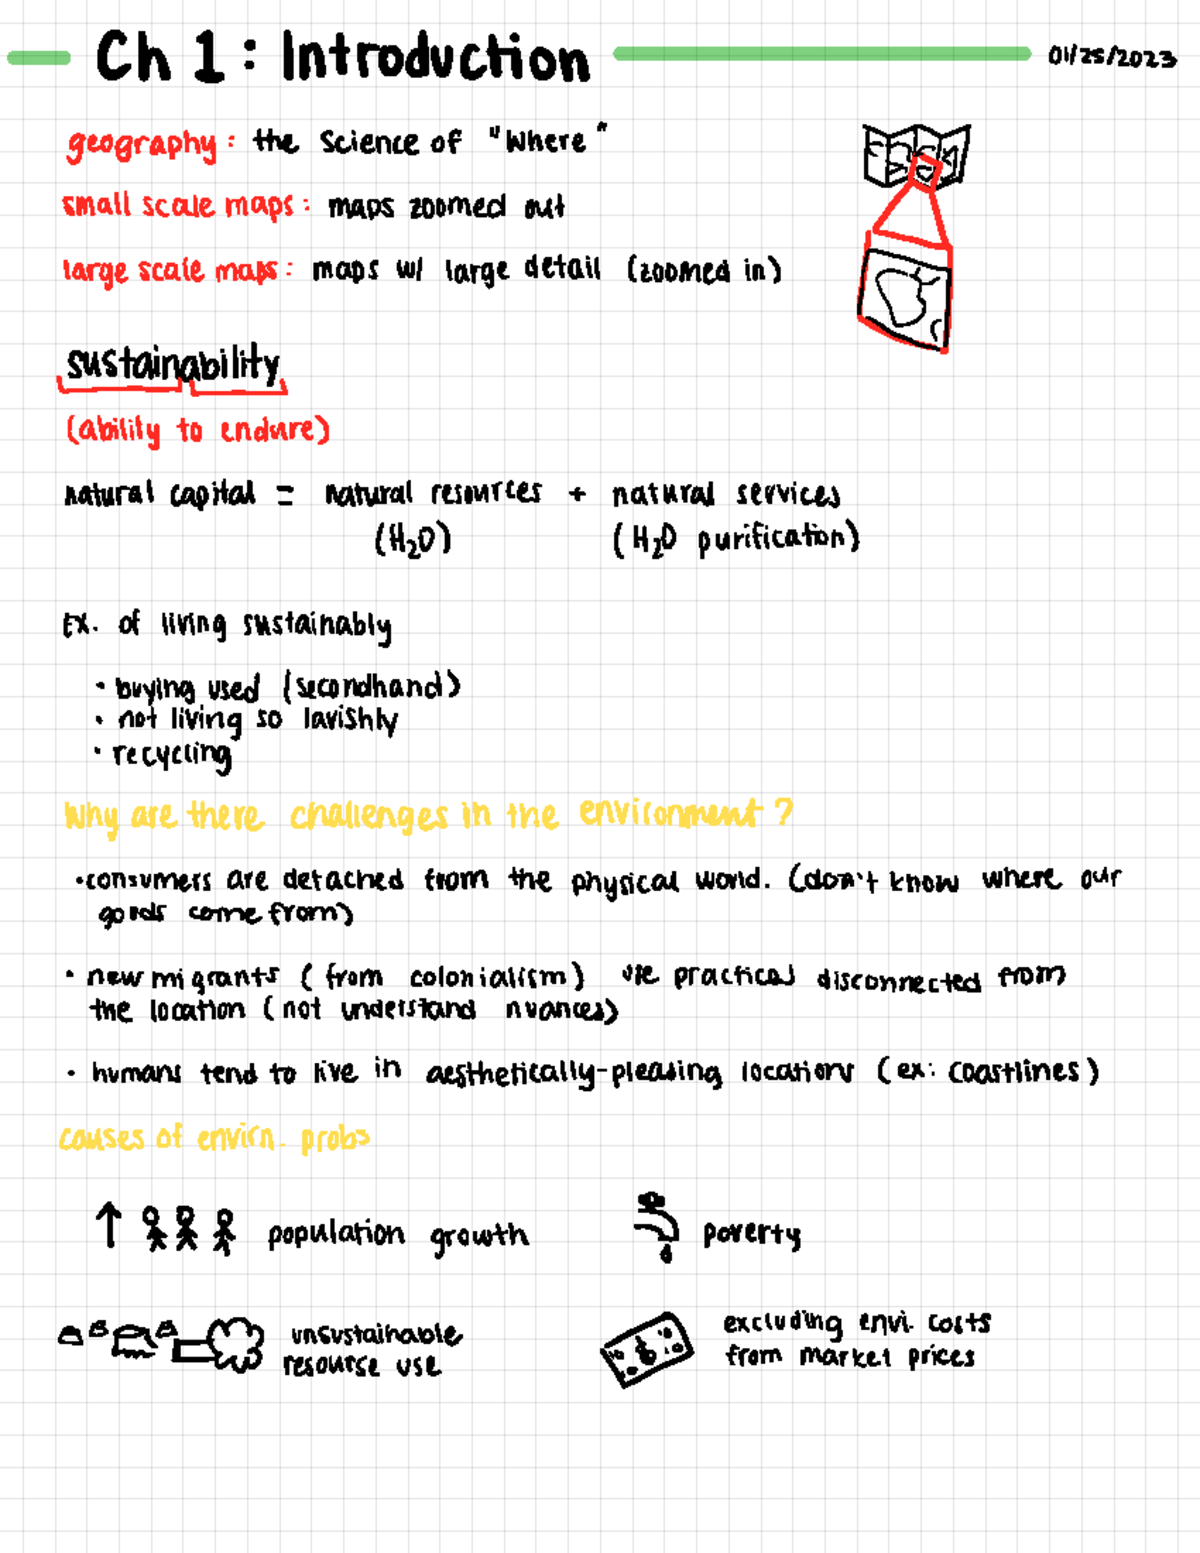 Ch 1: Introduction
01/25/2023
geography: the Science of "Where"
small scale maps: maps zoomed out
large scale maps: maps w/ large detail (zoomed in)
sustainability
(ability to endure)
natural capital = natural resources + natural services
(H₂O) (H₂O purification)
Ex. of living sustainably
• buying used (secondhand)
• not living so lavishly
• recycling
Why are there challenges in the environment?
•consumers are detached from the physical world. (don't know where our
goods come from)
• new migrants (from colonialism) use practical disconnected from
the location (not understand nuances)
• humans tend to live in aesthetically-pleasing locations (ex: coastlines)
causes of envirn. probs
↑ population growth
poverty
unsustainable
resourse use
excluding envi. costs
from market prices